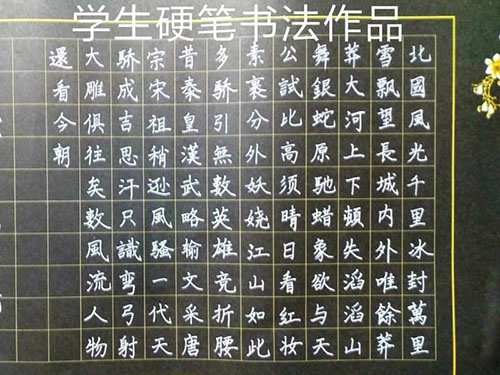 学生硬笔书法作品
北國風光千里冰封萬里
雪飄望長城内外唯餘莽
莽大河上下頓失滔滔山
舞銀蛇原馳蜡象欲与天
公試比高须晴日看紅妆
素裹分外妖娆江山如此
多驕引無數英雄竞折腰
昔秦皇漢武略輸文采唐
宗宋祖稍逊風騷一代天
驕成吉思汗只識弯弓射
大雕俱往矣數風流人物
還看今朝